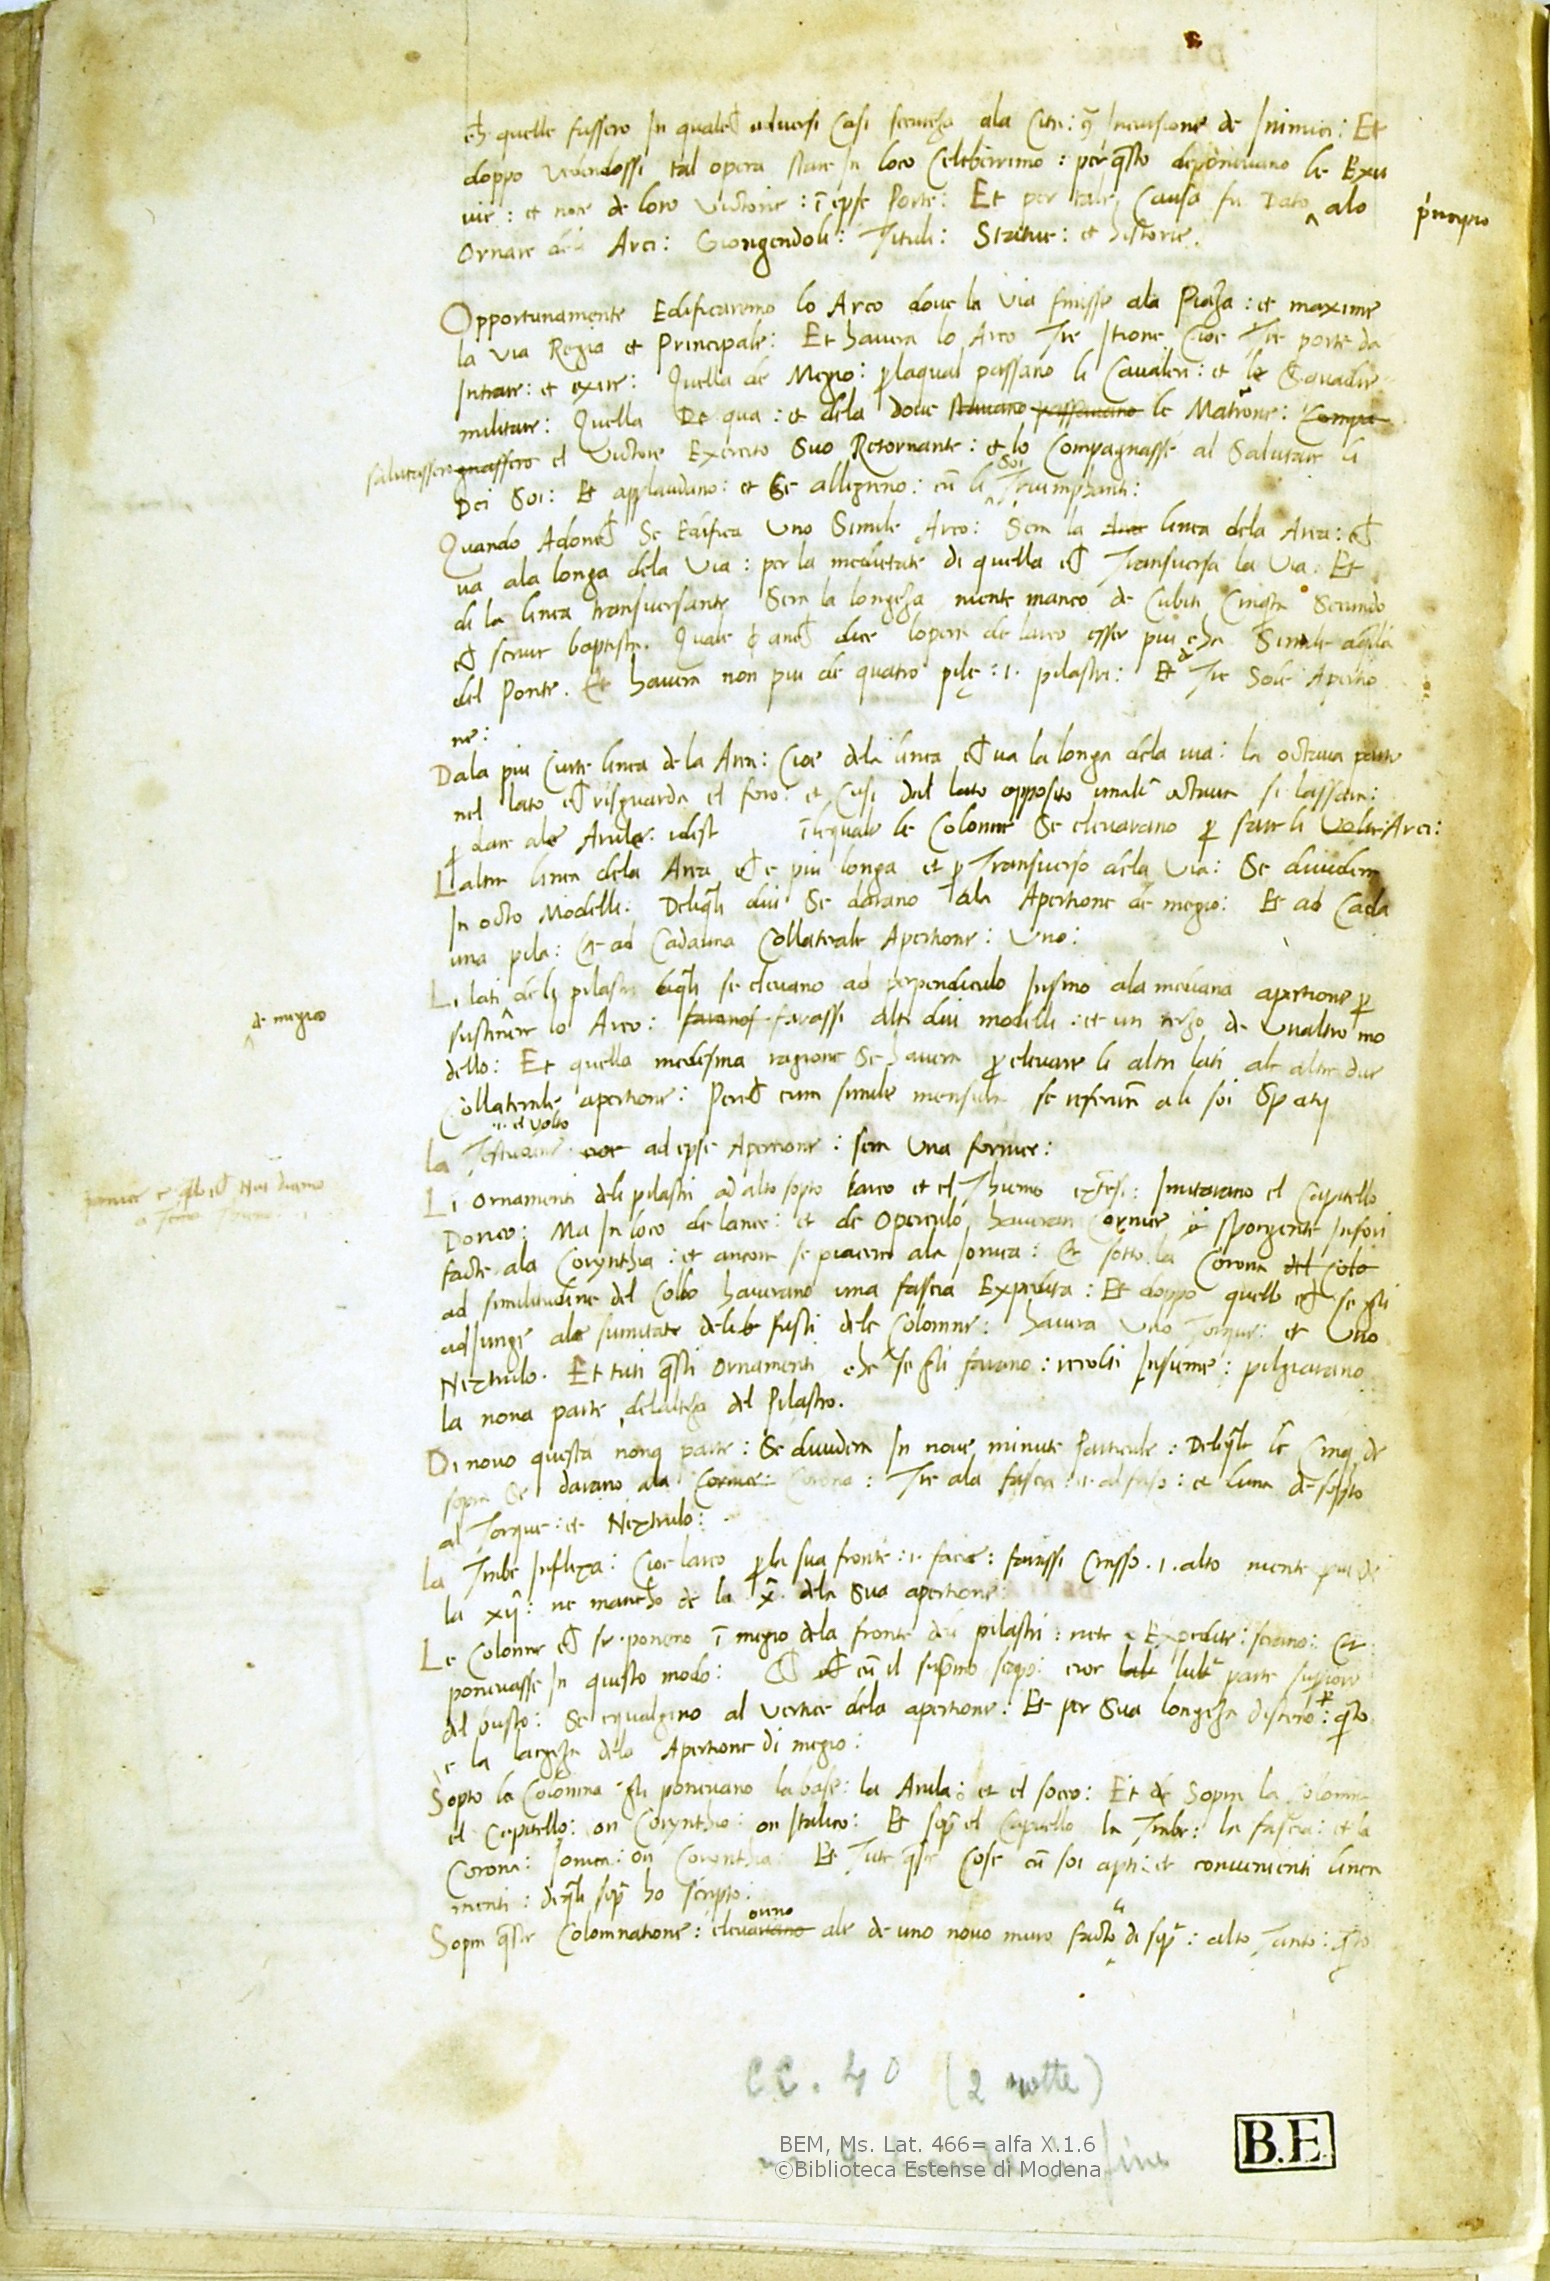 che quelle fussero In qualch adversi Casi secureza ala Cita: Incursione de Inimici: Et
doppo vedendossi tal opera stare In loco Celeberrimo: per questo deponevano le Exu
vie: et note de loro victorie: ī epse Porte: Et per tale Causa fu Dato alo
principio
Ornare deli Arci: Giongendoli: Tituli: Statue: et historie.
Opportunamente Edificaremo lo Arco dove la via finisse ala Piaza: et maxime
la via Regia et Principale: Et havera lo Arco Tre Itione Cioe Tre porte da
Intrare: et exire: Quella de Megio: p laqual passano li Cavaleri: et le Squadre
militare: Quella De qua: et dela dove passavano le Matrone: Compa
salutassero gnassero el victore Exercito Suo Retornante: et lo Compagnasse al Salutare li
Soi
Dei Soi: Et applaudano: et Se allegreno: cū li Triumphanti:
Quando Adonch Se Edifica Uno Simile Arco: Sera la linea dela Area: ch
va ala longa dela Via: per la medietate di quella ch Transversa la Via. Et
di la linea transversante Sera la longeza niente manco de Cubiti Cinqta Secundo
ch scrive baptista. Quale dice lopera de larco esser piu che Simile aqlla
del Ponte. Et havera non piu de quatro pile: .i. pilastri: Et Tre Sole Apertio
ne:
Dala piu Curte linea de la Area: Cioe dela linea ch va la longa dela via: la octava parte
nel lato ch risguarda el foro: et Cusi dal lato opposito octava si lassara:
p dare ale Arule: idest ī lequale le Colonne Se elevarano p fare li Volti: Arci:
Laltra linea dela Area ch e piu longa et p Transverso dela Via: Se dividera
In octo Modelli: Deliqli dui Se darano ala Apertione de megio: Et ad Cada
una pila: Et ad Cadauna Collaterale Apertione: Uno:
Li lati deli pilastri liqli se elevano ad perpendiculo Insino ala mediana apertione p
de megio
sustinere lo Arco: faranosi farassi alti dui modelli: et un terzo de unaltro mo
dello: Et quella medesma ragione Se havera p elevare li altri lati ale altre due
Collaterale apertione: Perch cum simile mensura se referirā ali soi Spatij
.i. el volto
La Testudine cioe ad epse Apertione: sera Una fornice:
fornice e qllo ch Nui diamo
Li Ornamenti deli pilastri ad alto sopto larco et el Thiemo extresi: Imitarano el Capitello
Dorico: Ma In loco de lance: et de Operculo haveran Cornice sporgente Infori
facte ala Corynthia: et ancora se piacera ala Ionica: Et sotto la Corona del Colo
ad similitudine del Collo haverano una fascia Expedita: Et doppo quello ch se gli
adiunge ale sumitate deli fusti dele Colonne: havera Uno Torque: et Uno
Nextrulo. Et tuti qsti Ornamenti che se gli farano: recolti Insieme: pilgiarano
la nona parte delalteza del Pilastro.
Di novo questa nona parte: Se dividera In nove minute Particule: Deleqle le Cinq de
sopra Se darano ala Cornice: Corona: Tre ala fascia: et luna de sopto
al Torque: et Nextrulo:
La Trabe Inflexa: Cioe larco p la sua fronte: .i. facie: farassi Crasso .i. alto niente piu de
la xij: ne mancho de la x. dela Sua apertione:
Le Colonne ch se poneno ī megio dela fronte deli pilastri: nete e Expedite: serano: Et
ponerasse In questo modo: Ch cū il supmo scapo: cioe parte supiore
del busto: Se equalgino al vertice dela apertione: Et per Sua longeza distero: qto
e la largeza dela Apertione di megio:
Sopto la Colonna gli ponerano la base: la Arula: et el socco: Et de Sopra la Colonna
el Capitello: on Corynthio: on Italico: Et sop el Capitello la Trabe: la fascia: et la
Corona: Ionica: on Corinthia: Et Tute qste Cose cū soi apti: et convenienti linea
menti: deqli sop ho scripto:
Sopra qste Colonnatione: elevarano ale de uno novo muro facto di sop: alto Tanto: qto
CC. 40 (2 notte)
BEM, Ms. Lat. 466= alfa X.1.6
©Biblioteca Estense di Modena
B.E.